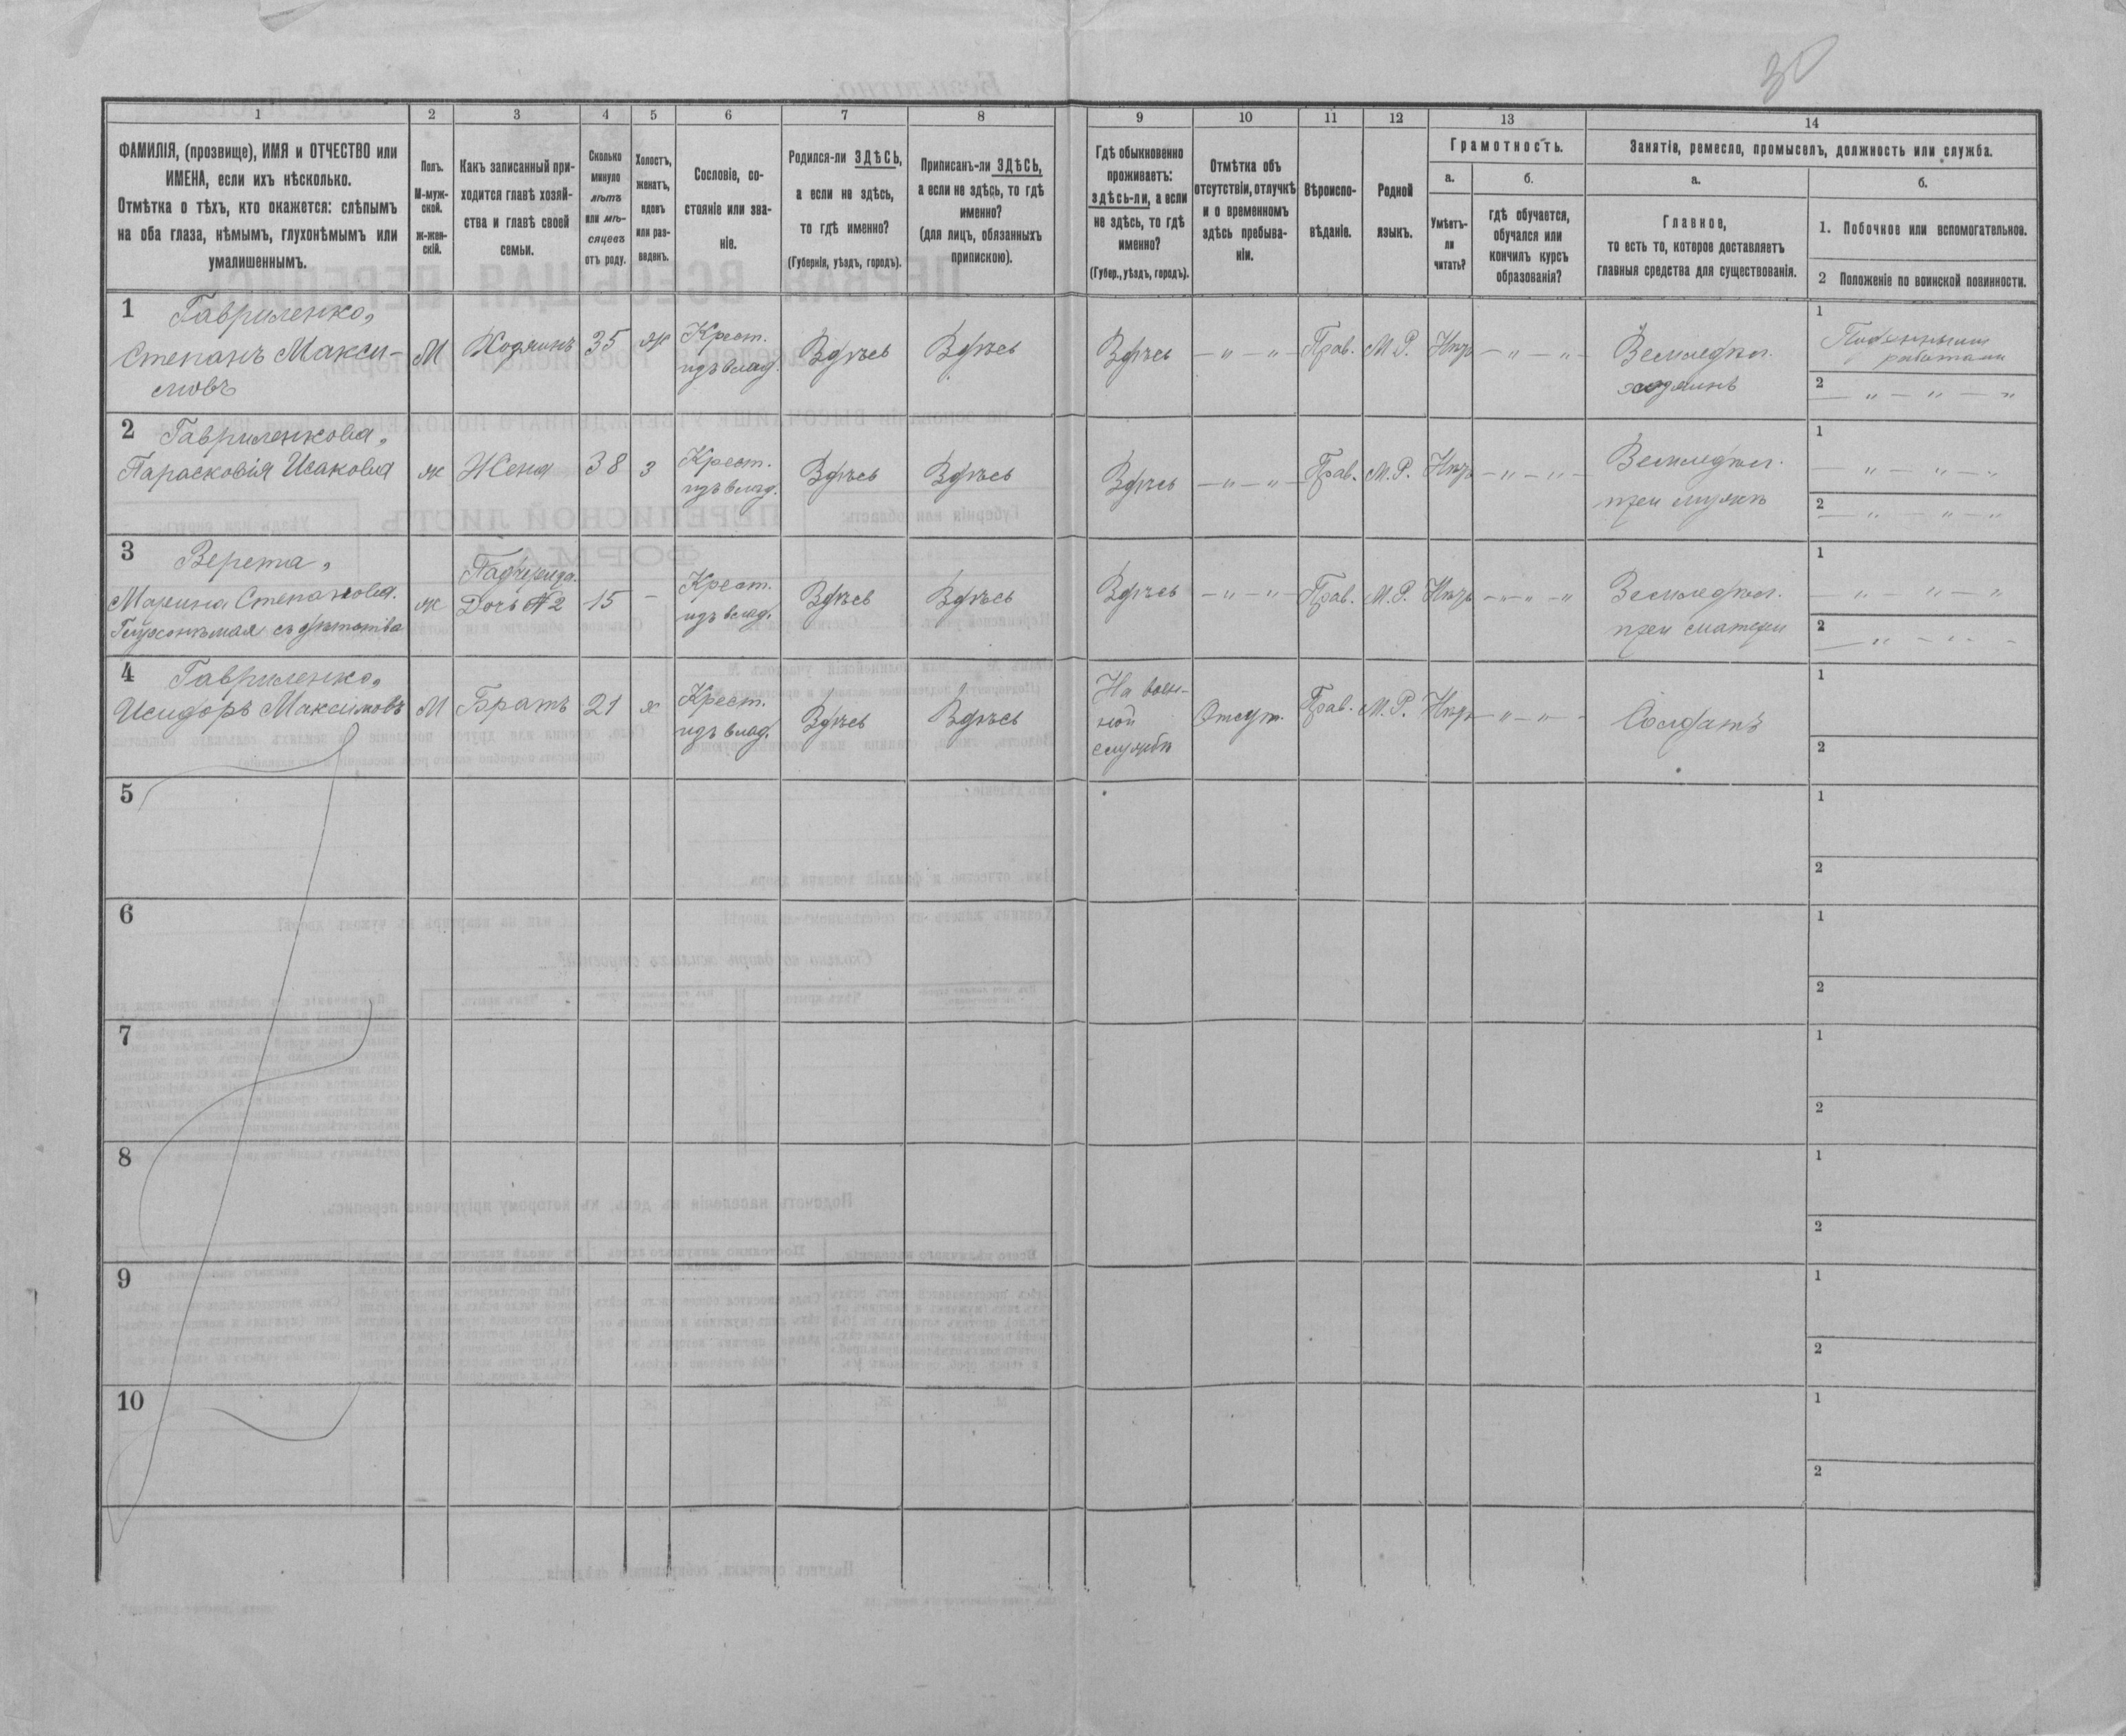 30
1
2
3
4
5
6
7
8
9
10
11
12
13
14
ФАМИЛІЯ, (прозвище), ИМЯ и ОТЧЕСТВО или
ИМЕНА, если ихъ нѣсколько.
Отмѣтка о тѣхъ, кто окажется: слѣпымъ
на оба глаза, нѣмымъ, глухонѣмымъ или
умалишеннымъ.
Полъ.
М-муж-
ской.
ж-жен-
скій.
Какъ записанный при-
ходится главѣ хозяй-
ства и главѣ своей
семьи.
Сколько
минуло
лѣтъ
или мѣ-
сяцевъ
отъ роду.
Холостъ,
женатъ,
вдовъ
или раз-
веденъ.
Сословіе, со-
стояніе или зва-
ніе.
Родился-ли ЗДѢСЬ,
а если не здѣсь,
то гдѣ именно?
(Губернія, уѣздъ, городъ).
Приписанъ-ли ЗДѢСЬ,
а если не здѣсь, то гдѣ
именно?
(для лицъ, обязанныхъ
припискою).
Гдѣ обыкновенно
проживаетъ:
здѣсь-ли, а если
не здѣсь, то гдѣ
именно?
(Губер., уѣздъ, городъ).
Отмѣтка объ
отсутствіи, отлучкѣ
и о временномъ
здѣсь пребыва-
ніи.
Вѣроиспо-
вѣданіе.
Родной
языкъ.
Грамотность.
а.
Умѣетъ-
ли
читать?
б.
гдѣ обучается,
обучался или
кончилъ курсъ
образованія?
Занятія, ремесло, промыселъ, должность или служба.
а.
Главное,
то есть то, которое доставляетъ
главныя средства для существованія.
б.
1. Побочное или вспомогательное.
2 Положеніе по воинской повинности.
1 Гавриленко,
Степанъ Макси-
мовъ
М
Хозяинъ
35
ж
Крест.
изъ влад.
Здѣсь
Здѣсь
Здѣсь
— „ — „ —
Прав.
М. Р.
Нѣтъ
— „ — „ —
Земледѣл.
хозяинъ
1
Поденными
работами
2
— „ — „ — „
2 Гавриленкова,
Парасковія Исакова
ж
Жена
38
з
Крест.
изъ влад.
Здѣсь
Здѣсь
Здѣсь
— „ — „ —
Прав.
М. Р.
Нѣтъ
— „ — „ —
Земледѣл.
при мужѣ
1
— „ — „ — „
2
— „ — „ — „
3 Верета,
Марина Степанова.
Глухонѣмая съ дѣтства
ж
Падчерица.
Дочь №2
15
-
Крест.
изъ влад.
Здѣсь
Здѣсь
Здѣсь
— „ — „ —
Прав.
М. Р.
Нѣтъ
— „ — „
Земледѣл.
при матери
1
— „ — „ — „
2
— „ — „ —
4 Гавриленко,
Исидоръ Максимовъ
М
Братъ
21
х
Крест.
изъ влад.
Здѣсь
Здѣсь
На воен-
ной
службѣ
Отсут.
Прав.
М. Р.
Нѣтъ
— „ — „ —
Солдатъ
1
2
5
1
2
6
1
2
7
1
2
8
1
2
9
1
2
10
1
2